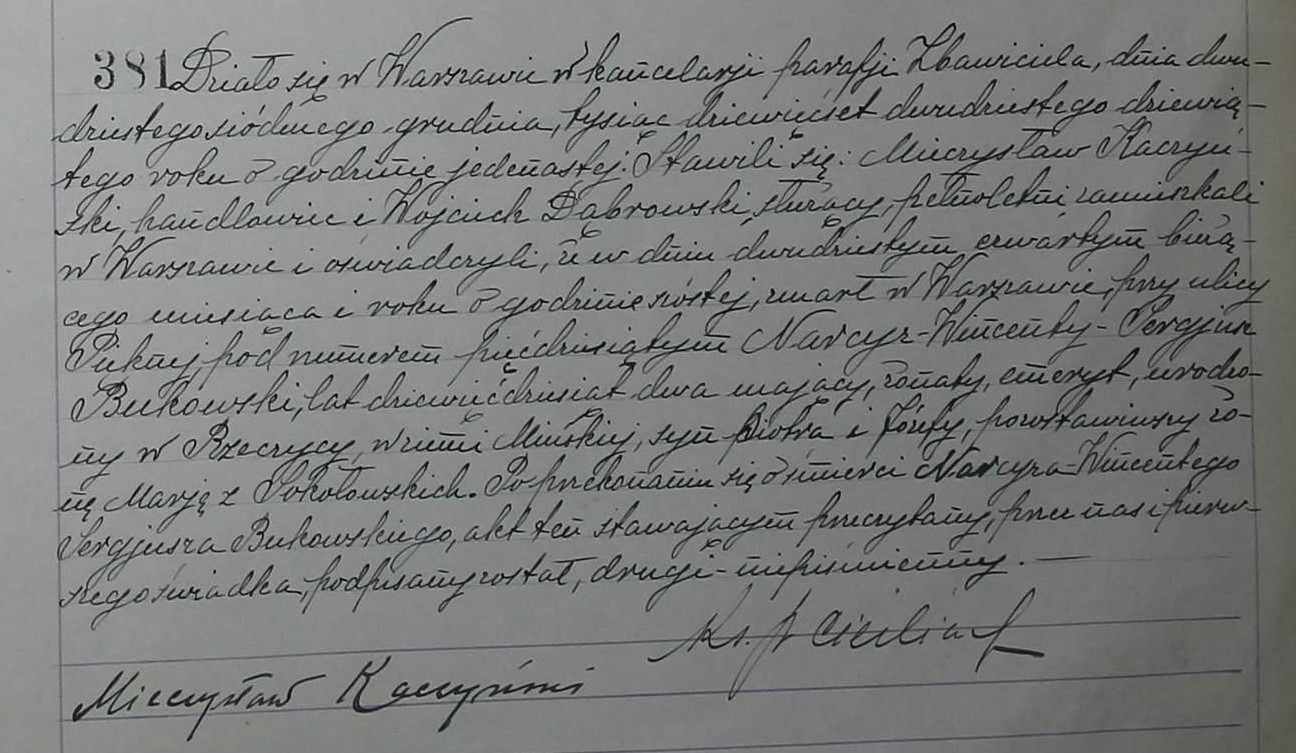 381 Działo się w Warszawie w kancelarji parafji Zbawiciela, dnia dwu-
dziestego siódmego grudnia, tysiąc dziewięćset dwudziestego dziewią-
tego roku o godzinie jedenastej. Stawili się: Mieczysław Kaczyń-
ski, handlowiec i Wojciech Dąbrowski, służący, pełnoletni zamieszkali
w Warszawie i oświadczyli, że w dniu dwudziestym czwartym bieżą-
cego miesiąca i roku o godzinie szóstej, zmarł w Warszawie, przy ulicy
Pięknej pod numerem pięćdziesiątym Narcyz-Wincenty-Sergjusz
Bukowski, lat dziewięćdziesiąt dwa mający, żonaty, emeryt, urodzo-
ny w Rzeczycy, w ziemi Mińskiej, syn Piotra i Józefy, pozostawiwszy żo-
nę Marję z Sokołowskich. Po przekonaniu się o śmierci Narcyza-Wincentego
Sergjusza Bukowskiego, akt ten stawającym przeczytany, przez nas i pierw-
szego świadka, podpisany został, drugi - niepiśmienny. —
Ks. J.
Mieczysław Kaczyński